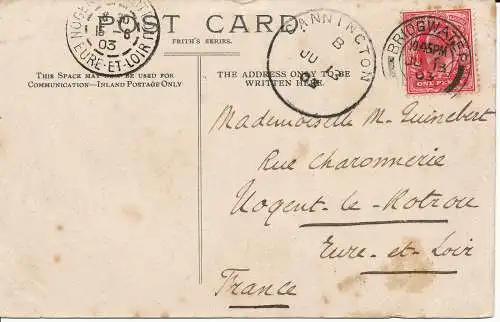 POST CARD
FRITH'S SERIES.
THIS SPACE MAY NOW BE USED FOR
COMMUNICATION—INLAND POSTAGE ONLY
THE ADDRESS ONLY TO BE
WRITTEN HERE.
15 - 6
03
EURE-ET-LOIR
CANNINGTON
B
JU 13
03
BRIDGWATER
10.45PM
JU 13
03
ONE PENNY
Mademoiselle M. Guinebert
Rue Charonnerie
Nogent-le-Rotrou
Eure-et-Loir
France